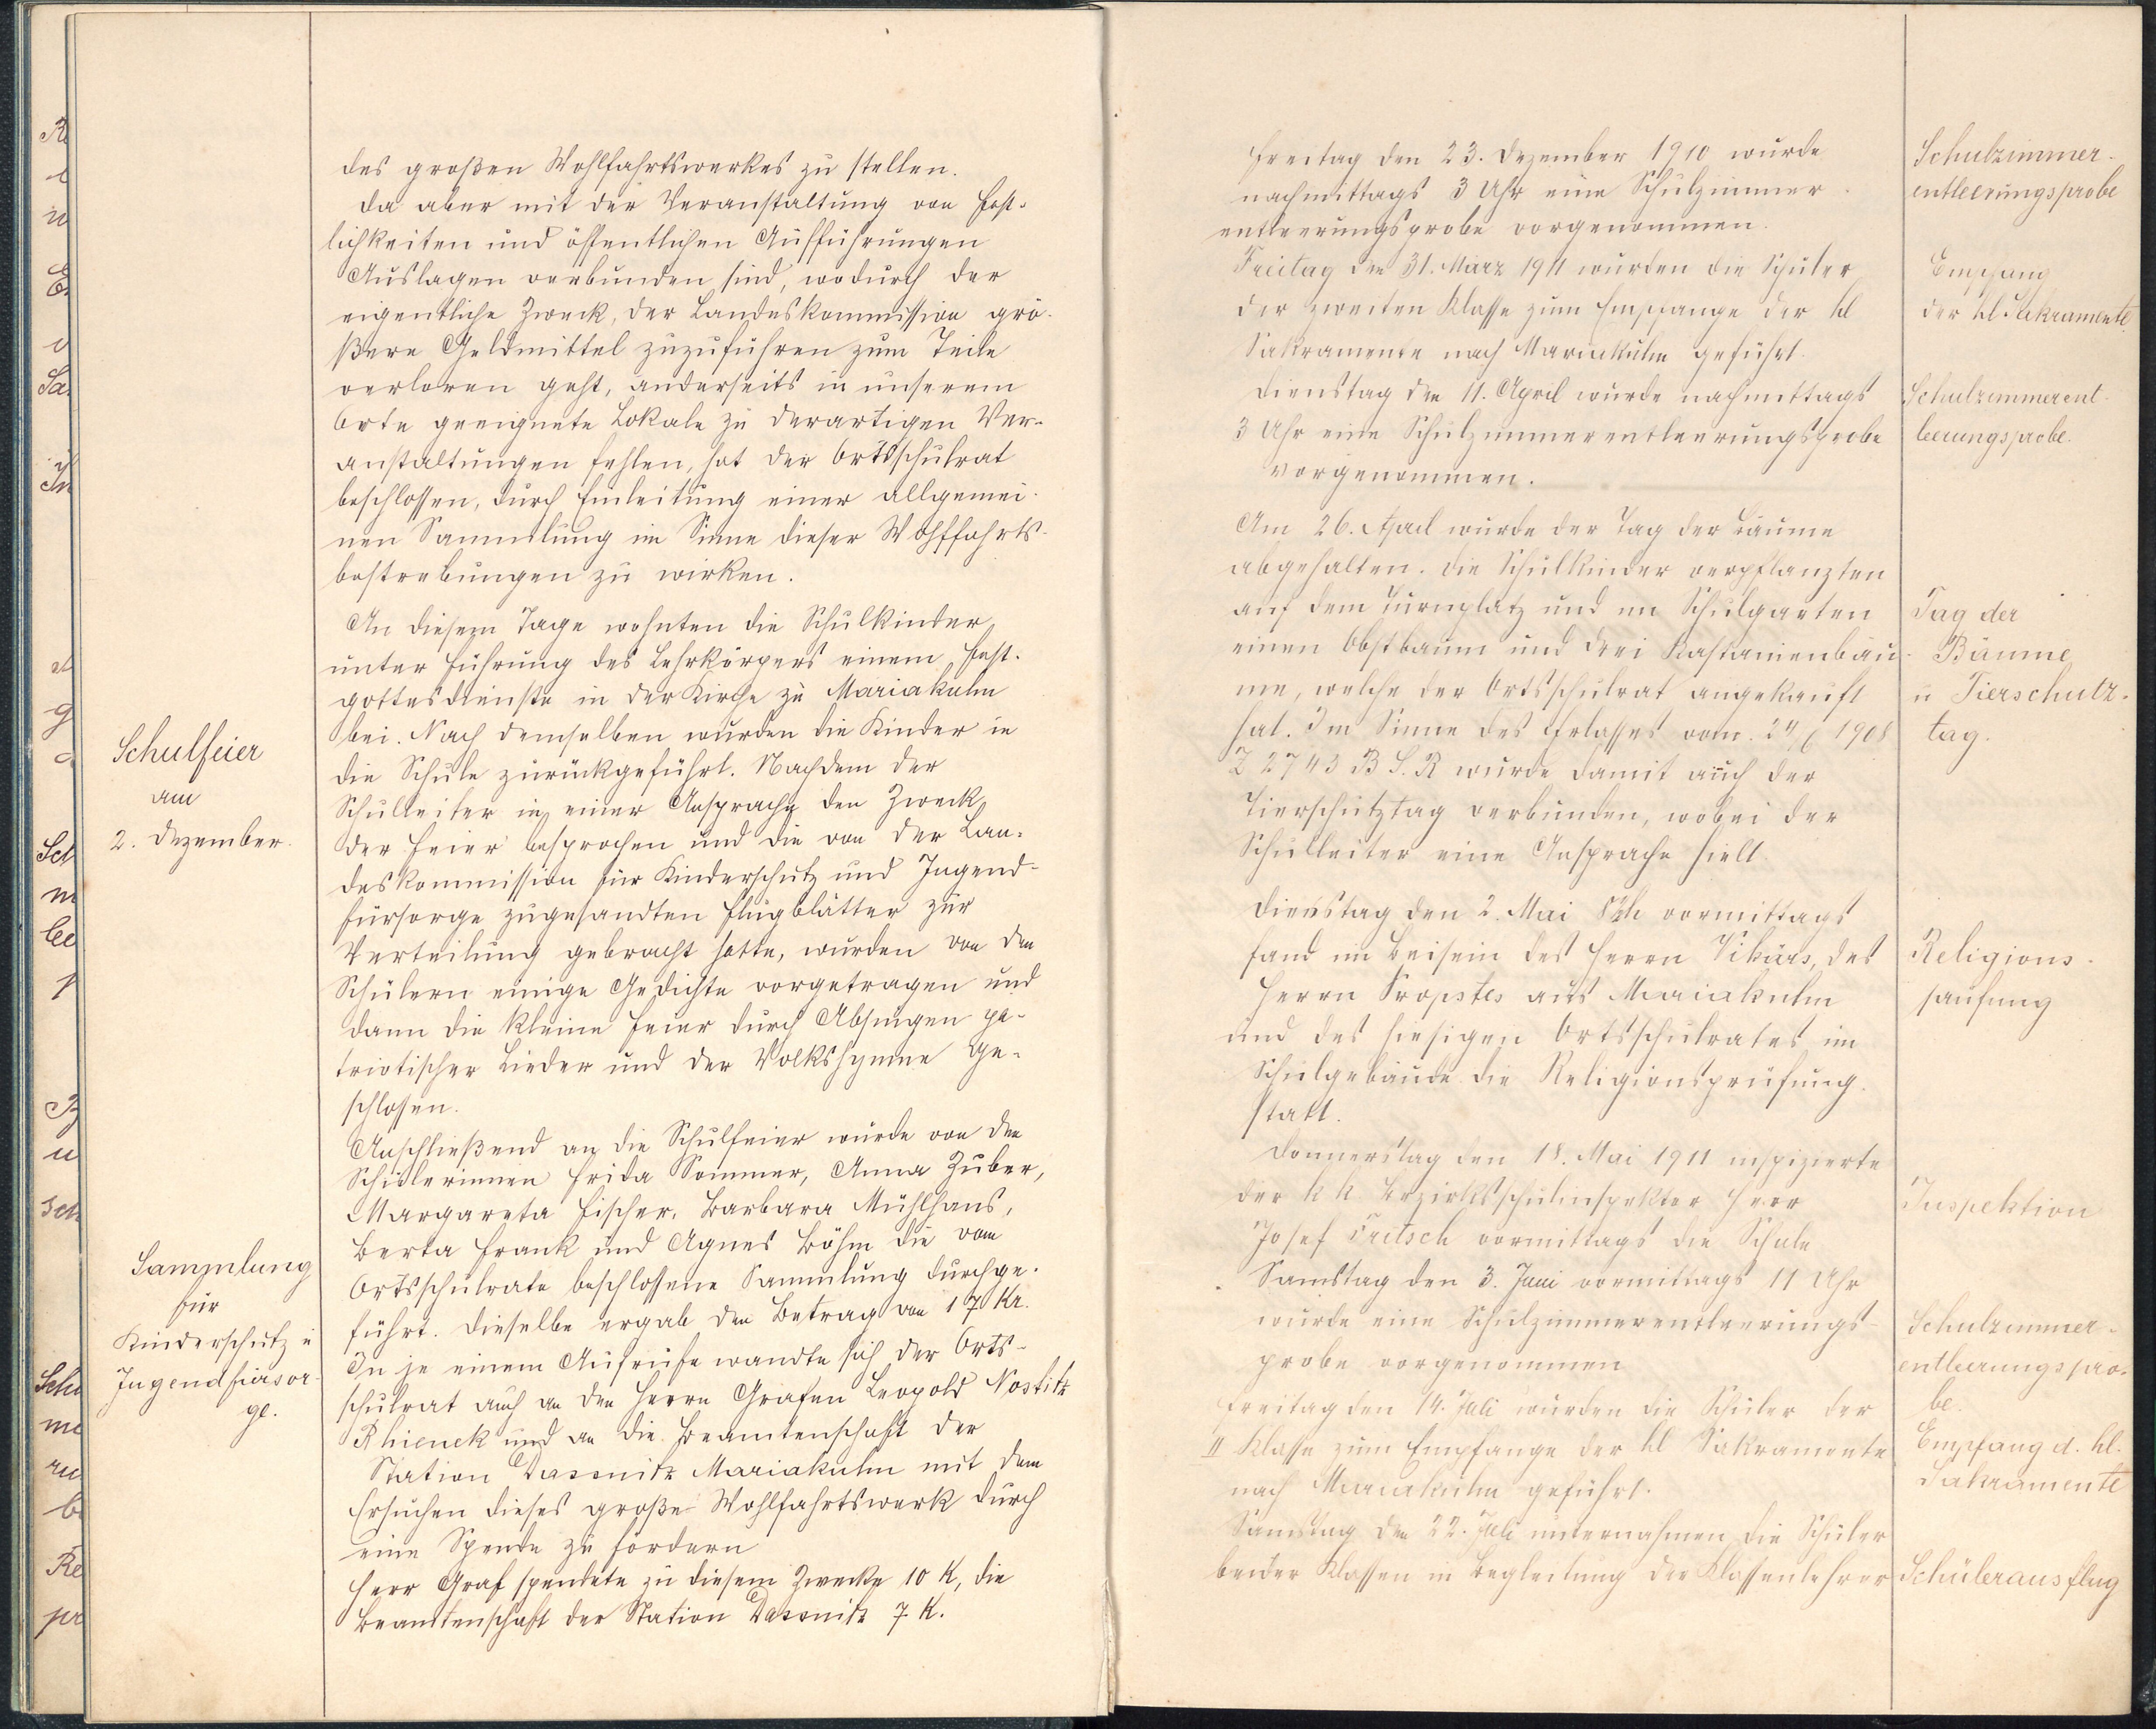 des großen Wohlfahrtswerkes zu stellen.
Da aber mit der Veranstaltung von Fest-
lichkeiten und öffentlichen Aufführungen
Auslagen verbunden sind, wodurch der
eigentliche Zweck, der Landeskommission grö-
ßere Geldmittel zuzuführen zum Teile
verloren geht, anderseits in unserem
Orte geeignete Lokale zu derartigen Ver-
anstaltungen fehlen, hat der Ortsschulrat
beschlossen, durch Einleitung einer allgemei-
nen Sammlung im Sinne dieser Wohlfahrts-
bestrebungen zu wirken.
An diesem Tage wohnten die Schulkinder
unter Führung des Lehrkörpers einem Fest-
gottesdienste in der Kirche zu Mariakulm
bei. Nach demselben wurden die Kinder in
die Schule zurückgeführt. Nachdem der
Schulleiter in einer Ansprache den Zweck
der Feier besprochen und die von der Lan-
deskommission für Kinderschutz und Jugend-
fürsorge zugesandten Flugblätter zur
Verteilung gebracht hatte, wurden von den
Schülern einige Gedichte vorgetragen und
dann die kleine Feier durch Absingen pa-
triotischer Lieder und der Volkshymne ge-
schlossen.
Schulfeier
am
2. Dezember.
Anschließend an die Schulfeier wurde von den
Schülerinnen Frida Sommer, Anna Zuber,
Margareta Fischer, Barbara Mühlhans,
Berta Frank und Agnes Böhm die vom
Ortsschulrate beschlossene Sammlung durchge-
führt. Dieselbe ergab den Betrag von 17 Kr.
In je einem Aufrufe wandte sich der Orts-
schulrat auch an den Herrn Grafen Leopold Nostitz
Rhienek und an die Beamtenschaft der
Station Dassnitz Mariakulm mit dem
Ersuchen dieses große Wohlfahrtswerk durch
eine Spende zu fördern
Herr Graf spendete zu diesem Zwecke 10 K, die
Beamtenschaft der Station Dassnitz 7 K.
Sammlung
für
Kinderschutz u
Jugendfürsor-
ge.
Freitag den 23. Dezember 1910 wurde
nachmittags 3 Uhr eine Schulzimmer-
entleerungsprobe vorgenommen.
Schulzimmer-
entleerungsprobe
Freitag den 31. März 1911 wurden die Schüler
der zweiten Klasse zum Empfange der hl
Sakramente nach Mariakulm geführt.
Empfang
der hl. Sakramente
Dienstag den 11. April wurde nachmittags
3 Uhr eine Schulzimmerentleerungsprobe
vorgenommen.
Schulzimmerent-
leerungsprobe.
Am 26. April wurde der Tag der Bäume
abgehalten. Die Schulkinder verpflanzten
auf dem Turnplatz und im Schulgarten
einen Obstbaum und drei Kastanienbäu-
me, welche der Ortsschulrat angekauft
hat. Im Sinne des Erlasses vom 24/6 1908
Z 2743 B.S.R wurde damit auch der
Tierschutztag verbunden, wobei der
Schulleiter eine Ansprache hielt.
Tag der
Bäume
u Tierschutz-
tag.
Dienstag den 2. Mai vormittags
fand im Beisein des Herrn Vikärs, des
Herrn Propstes aus Mariakulm
und des hiesigen Ortsschulrates im
Schulgebäude die Religionsprüfung
statt.
Religions-
prüfung
Donnerstag den 18. Mai 1911 inspizierte
der k k Bezirksschulinspektor Herr
Josef Fritsch vormittags die Schule
Inspektion
Samstag den 3. Juni vormittags 11 Uhr
wurde eine Schulzimmerentleerungs-
probe vorgenommen
Schulzimmer-
entleerungspro-
be.
Freitag den 14. Juli wurden die Schüler der
II Klasse zum Empfange der hl Sakramente
nach Mariakulm geführt.
Empfang d. hl.
Sakramente
Samstag den 22. Juli unternahmen die Schüler
beider Klassen in Begleitung der Klassenlehrer
Schülerausflug